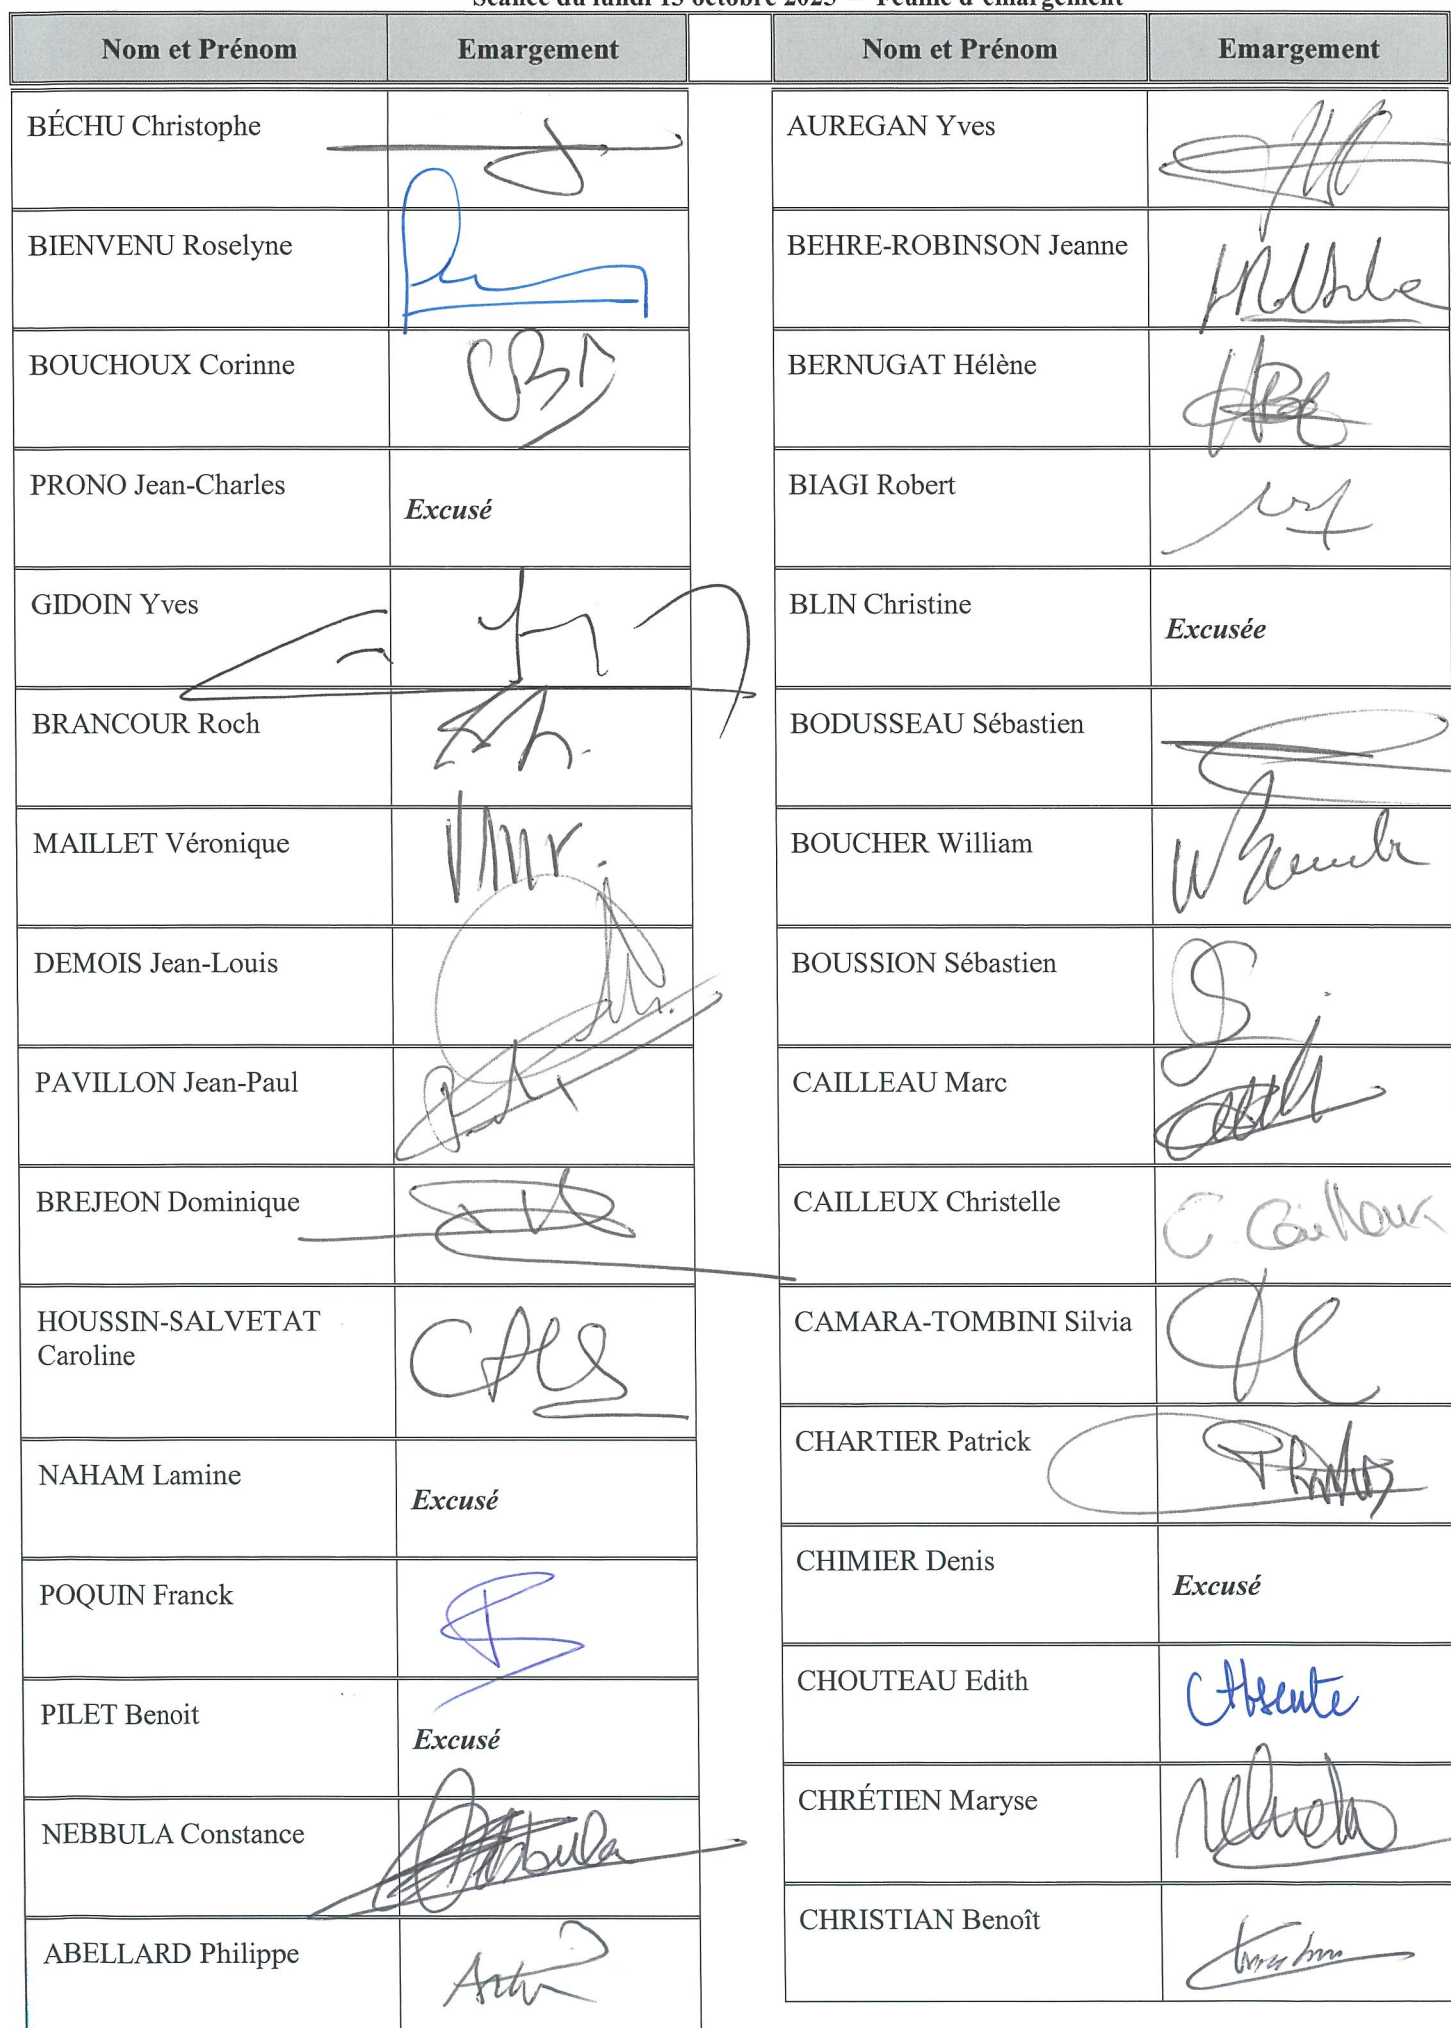 Séance du lundi 13 octobre 2025 – Feuille d'émargement
Nom et Prénom Emargement
BÉCHU Christophe
BIENVENU Roselyne
BOUCHOUX Corinne
PRONO Jean-Charles Excusé
GIDOIN Yves
BRANCOUR Roch
MAILLET Véronique
DEMOIS Jean-Louis
PAVILLON Jean-Paul
BREJEON Dominique
HOUSSIN-SALVETAT
Caroline
NAHAM Lamine Excusé
POQUIN Franck
PILET Benoit Excusé
NEBBULA Constance
ABELLARD Philippe
Nom et Prénom Emargement
AUREGAN Yves
BEHRE-ROBINSON Jeanne
BERNUGAT Hélène
BIAGI Robert
BLIN Christine Excusée
BODUSSEAU Sébastien
BOUCHER William
BOUSSION Sébastien
CAILLEAU Marc
CAILLEUX Christelle C. Cailleux
CAMARA-TOMBINI Silvia
CHARTIER Patrick
CHIMIER Denis Excusé
CHOUTEAU Edith Absente
CHRÉTIEN Maryse
CHRISTIAN Benoît